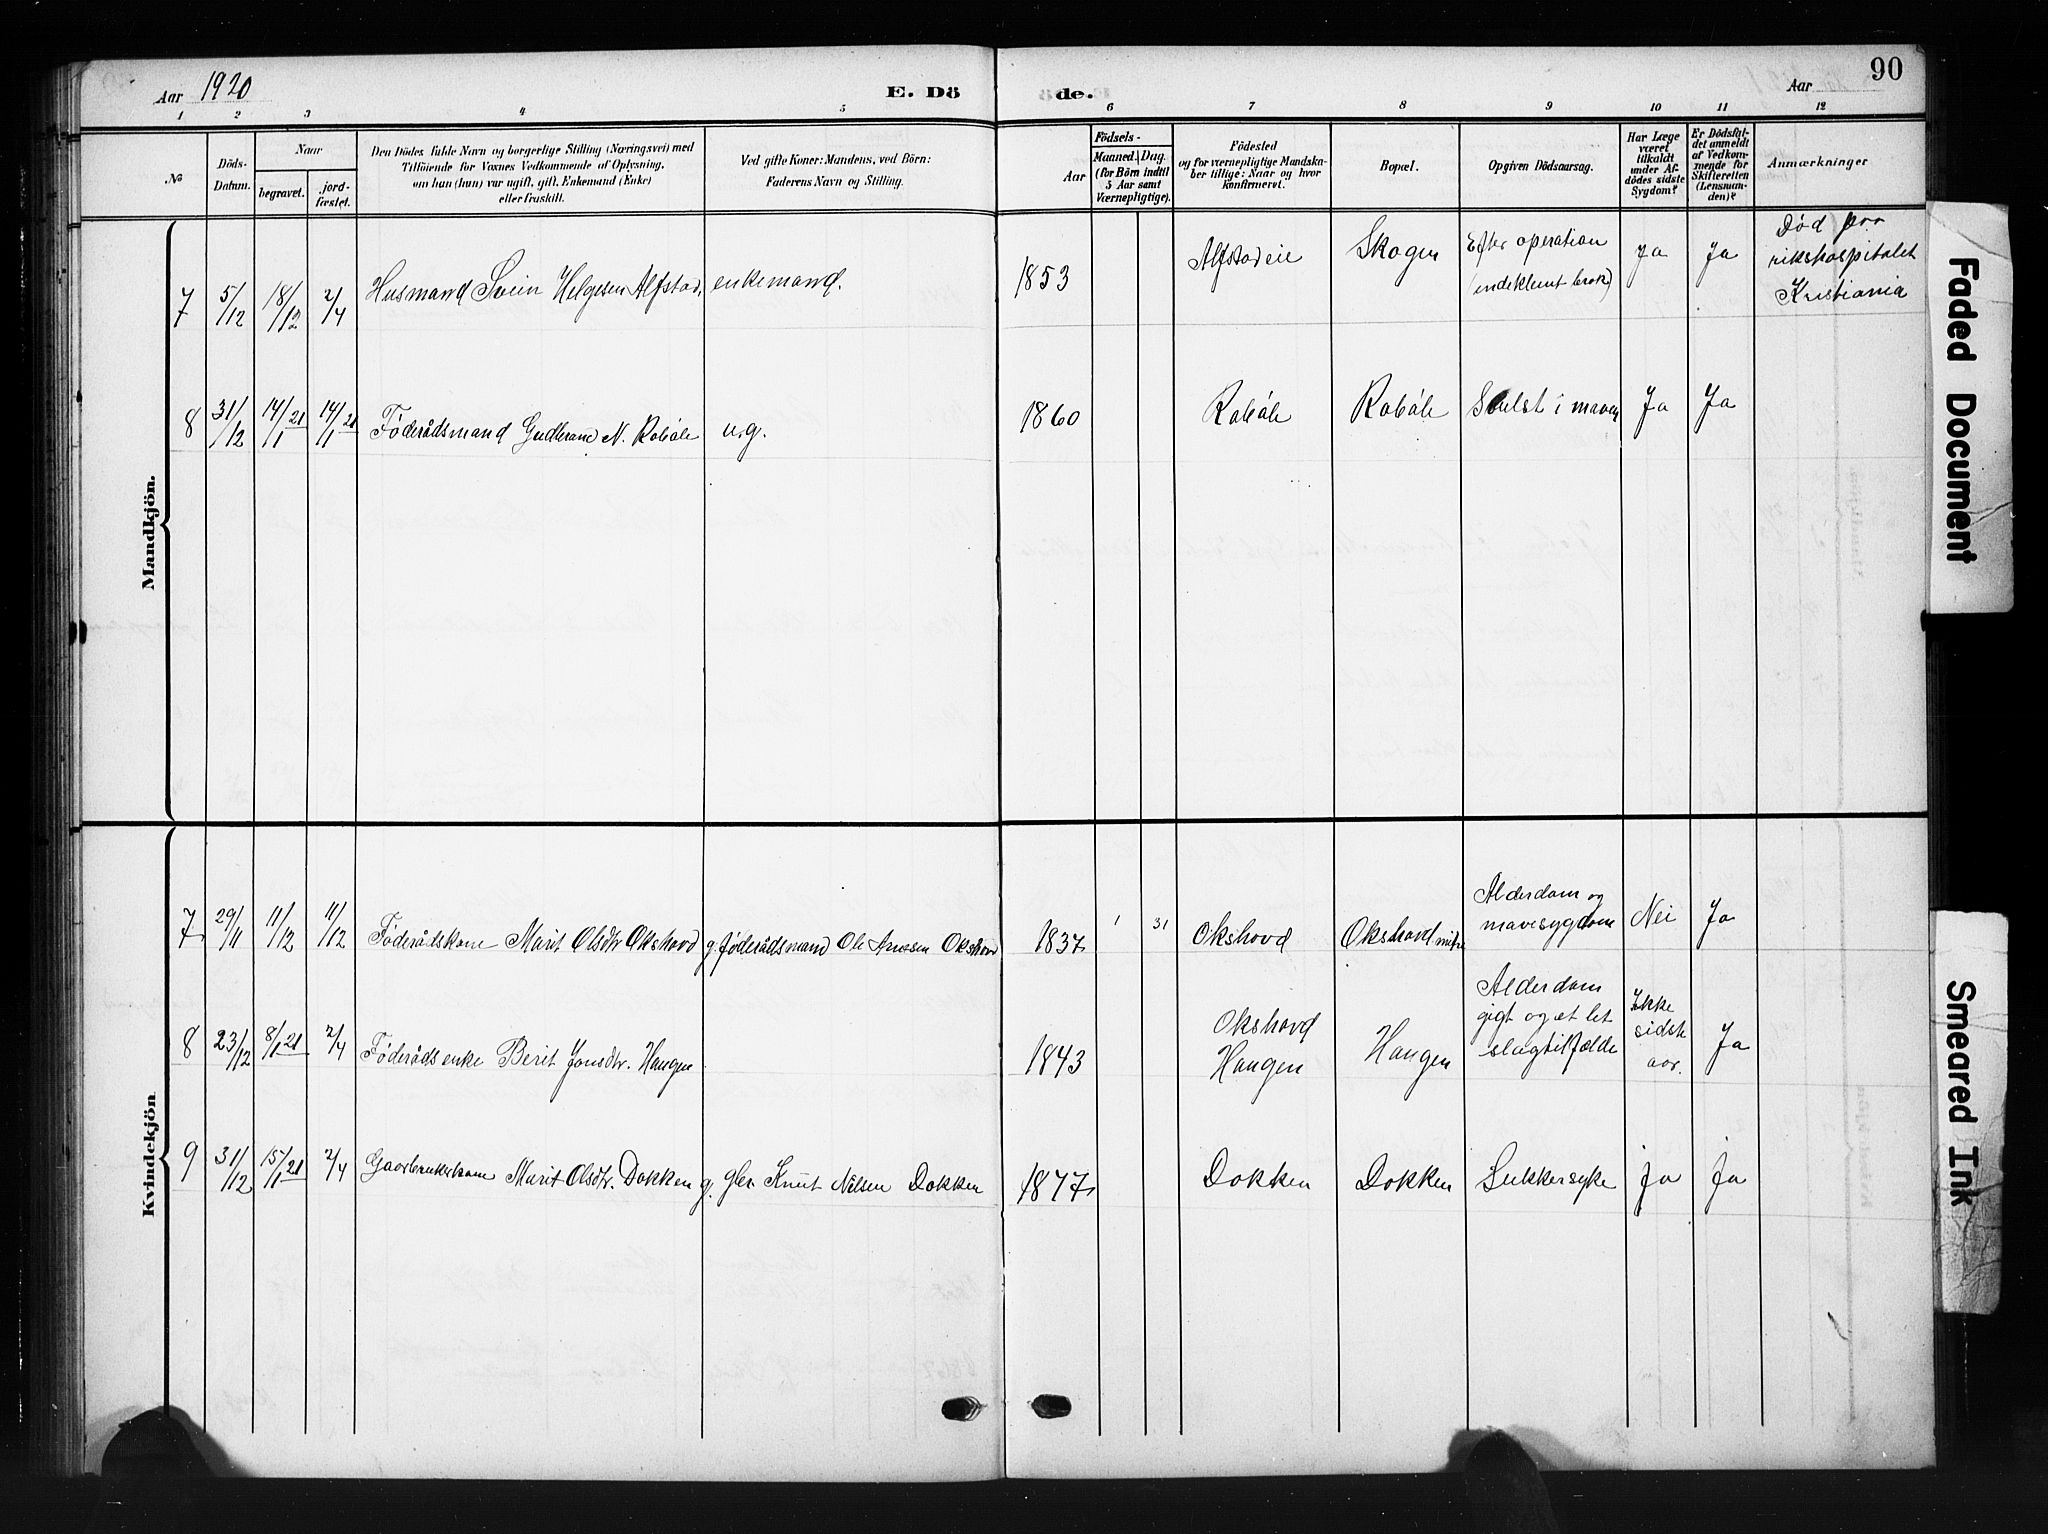 Aar 1920 E. Dö de. Aar 90
1 2 3 4 5 6 7 8 9 10 11 12
№
Döds-
Datum.
Naar
begravet.
jord-
fæstet.
Den Dödes fulde Navn og borgerlige Stilling (Næringsvei) med
Tilföiende for Voxnes Vedkommende af Oplysning,
om han (hun) var ugift, gift, Enkemand (Enke)
eller fraskilt.
Ved gifte Koner: Mandens, ved Börn:
Faderens Navn og Stilling.
Aar
Födsels-
Maaned. Dag.
(for Börn indtil
5 Aar samt
Værnepligtige).
Födested
og for værnepligtige Mandska-
ber tillige: Naar og hvor
konfirmeret.
Bopæl.
Opgiven Dödsaarsag.
Har Læge
været
tilkaldt
under Af-
dödes sidste
Sygdom?
Er Dödsfal-
det anmeldt
af Vedkom-
mende for
Skifteretten
(Lensman-
den)?
Anmærkninger
Mandkjön.
7 5/12 18/12 2/4 Husmand Svein Helgesen Alfstad, enkemand. 1853 Alfstadeie Skogen Efter operation
(indeklemt brok) Ja Ja Død paa
rikshospitalet
Kristiania
8 31/12 14/1 21 14/1 21 Føderådsmand Gudbrand N. Robøle u.g. 1860 Robøle Robøle Svulst i maven Ja Ja
Kvindekjön
7 29/11 11/12 11/12 Føderådskone Marit Olsdtr Okshovd g. føderådsmand Ole Okshovd 1837 1 31 Okshovd Okshovd Alderdom og
mavesygdom Nei Ja
8 23/12 8/1 21 2/4 Føderådsenke Berit Jonsdtr. Haugen 1843 Okshovd
Haugen Haugen Alderdom
gigt og et let
slagtilfælde Ikke
sidste
aar. Ja
9 31/12 15/1 21 2/4 Gaardbrukerkone Marit Olsdtr. Dokken g. gbr. Knut Nilsen Dokken 1877 Dokken Dokken Sukkersyke ja Ja
Faded Document
Smeared Ink